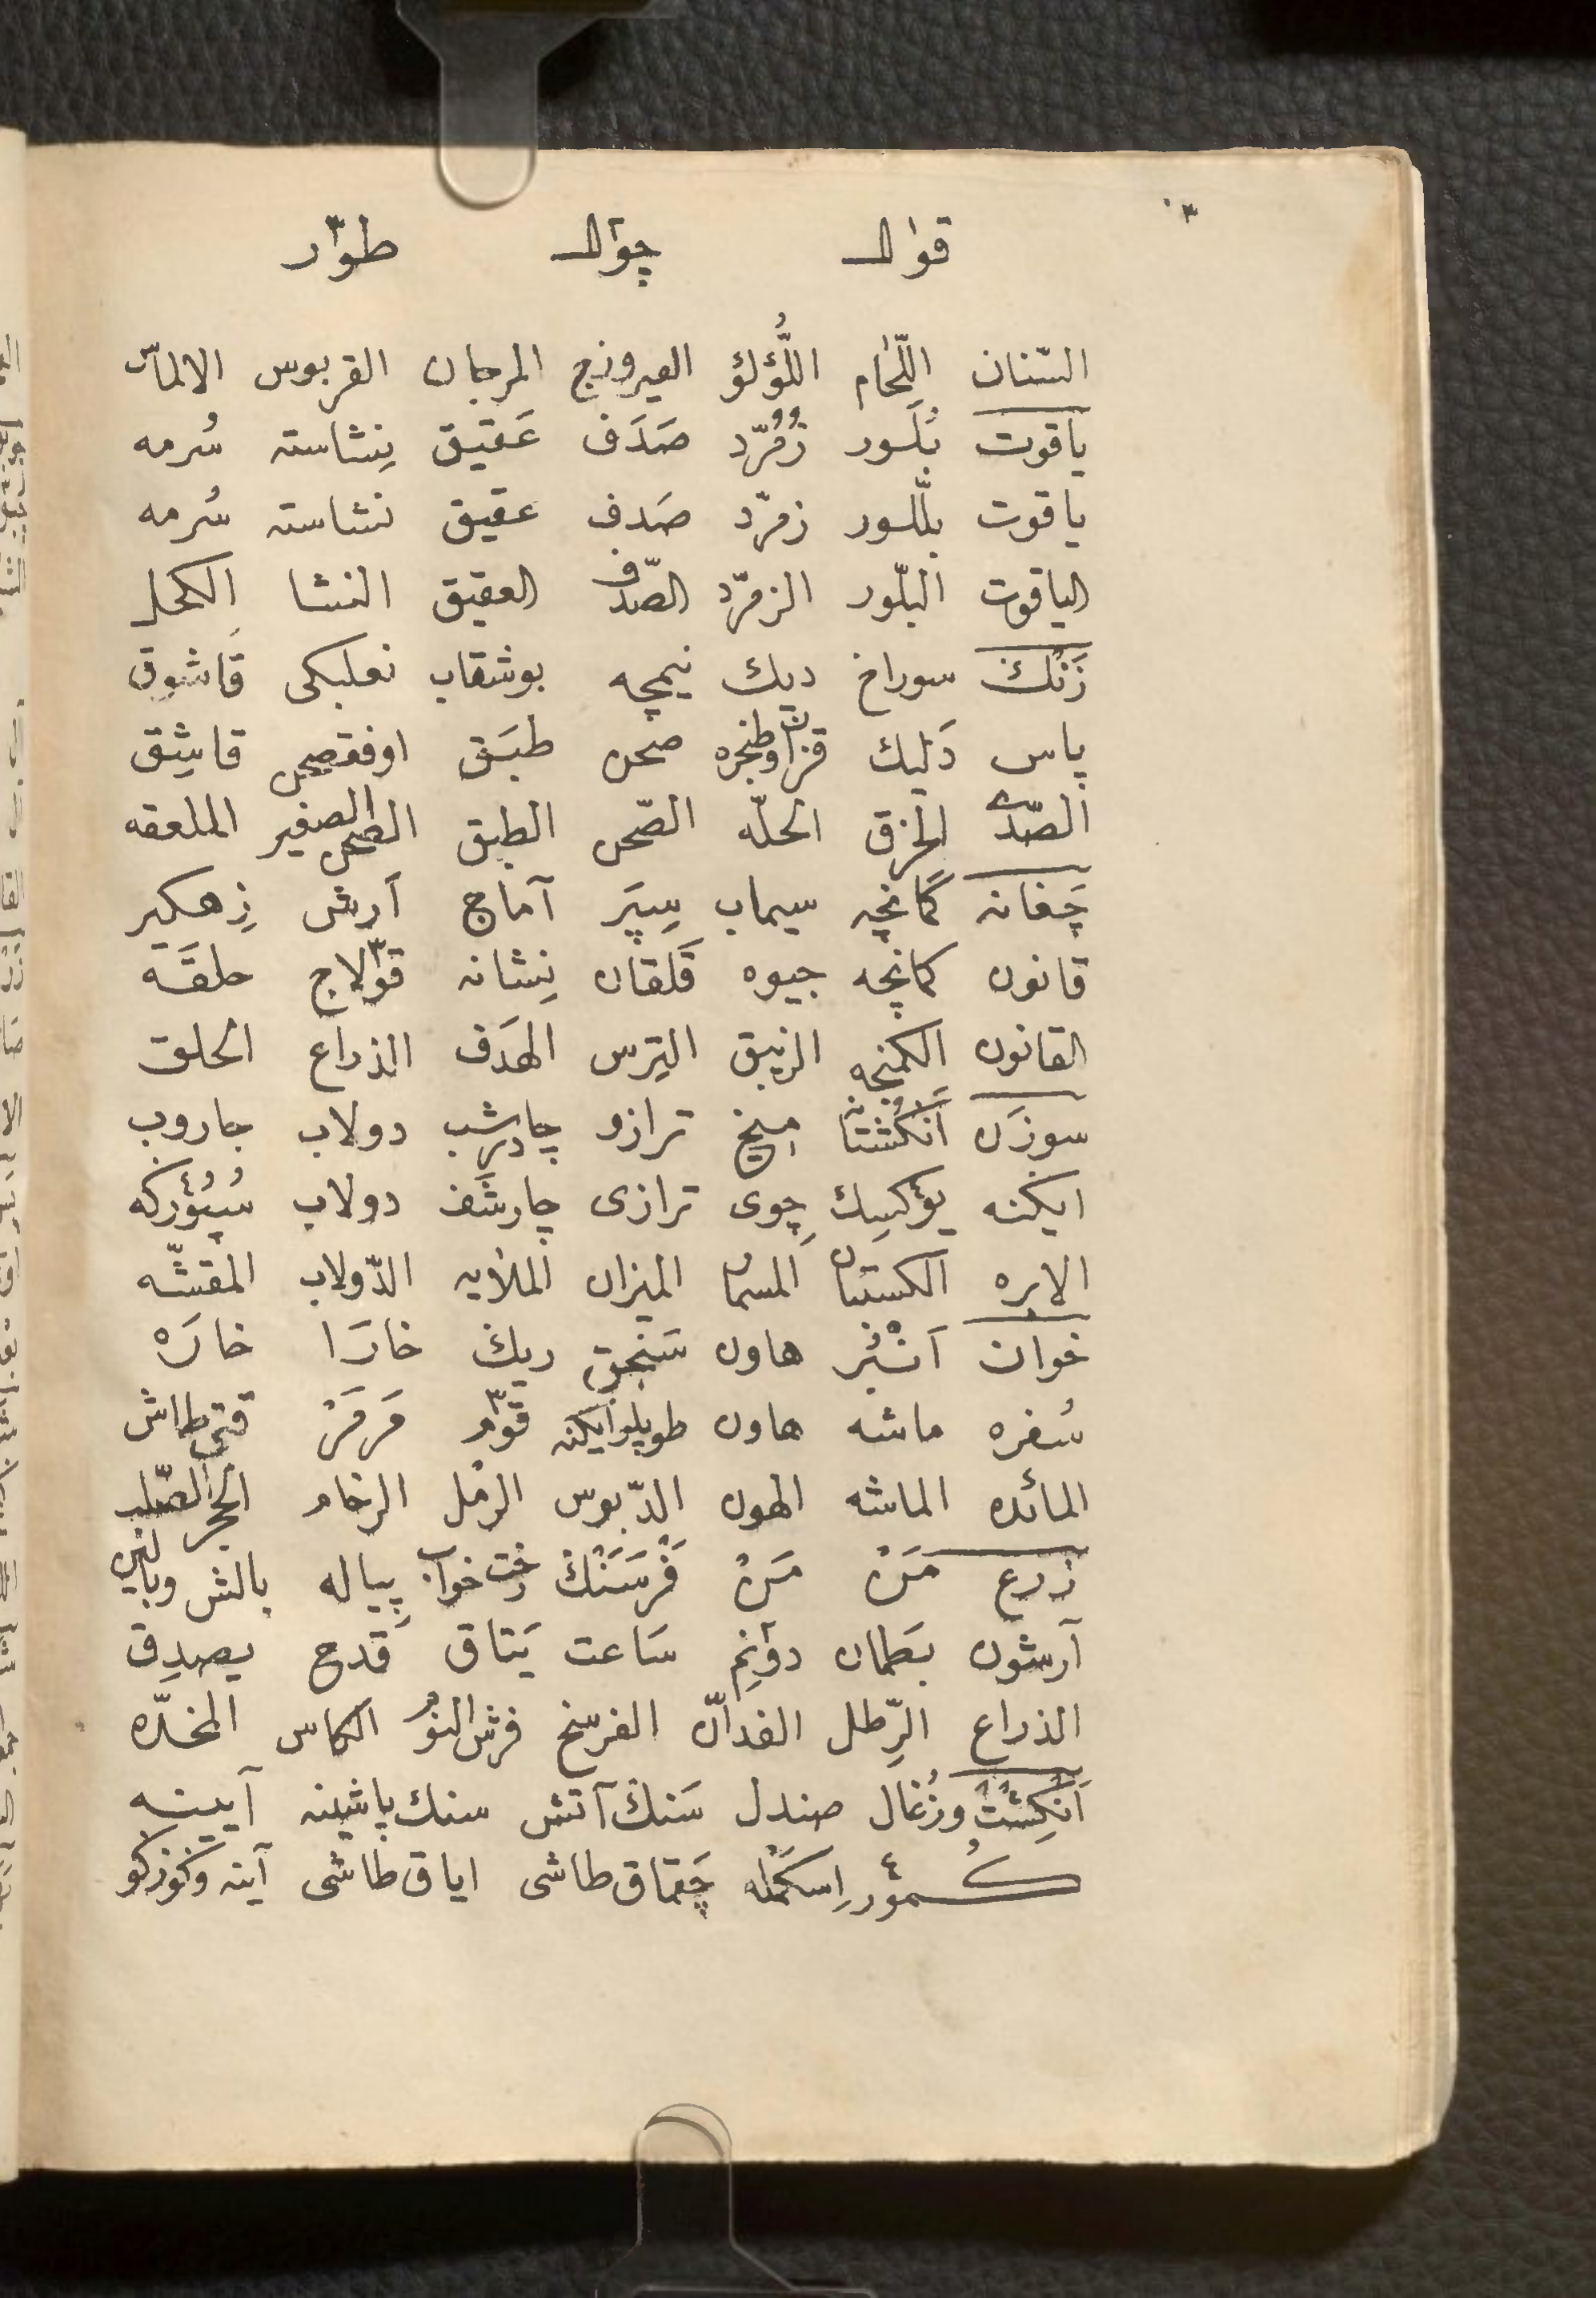 قوال چوال طوار
السّنان اللّجام اللُّؤلؤ الفيروزج المرجان القربوس الالماس
ياقوت بُلَور زُمُرّد صَدَف عَقيق نِشاسته سُرمه
ياقوت بللور زمرّد صَدف عقيق نشاسته سُرمه
الياقوت البلّور الزمرّد الصّدف العقيق النشا الكحل
زَنْك سوراخ ديك نيمچه بوشقاب نعلبكى قاشوق
پاس دَليك قزان وطنجره صحن طبَق اوفق صحن قاشِق
الصّدى الخزق الحلّه الصّحن الطبق الصحن الصغير الملعقه
چَغانه كَمانچه سيماب سِپَر آماج اَرش زِهكير
قانون كمانچه جيوه قَلقان نِشانه قوّلاج حلقَه
القانون الكمنجه الزيبق التِرس الهَدَف الذراع الحلق
سوزَن اَنكُشتانه ميخ ترازو چادرشب دولاب جاروب
ايكنه يؤكسِك چِوى ترازى چارشَف دولاب سُپُؤركه
الابره الكستبان المسمار الميزان الملايه الدّولاب المقشّه
خوان اَنْبُر هاون سَنجق ريك خارَا خارَه
سُفره ماشه هاون طوپلو ايكنه قوّم مَرمَرْ قتى طاش
المائده الماشه الهون الدّبوس الرمْل الرخام الحجر الصّلب
زرع مَنْ مَنْ فَرْسَنْك رخت خواب پِياله بالش وبالين
آرشون بَطمان دؤنِم سَاعت يَتاق قَدح يصدِق
الذراع الرِّطل الفدّان الفرسخ فرش النوم الكاس المخدّه
اَنكِشْتْ وزُغال صندل سَنك آتش سنك پاشينه آيينه
كُمؤر اِسكَمله چَقماق طاشى اياق طاشى آينه وكوزكو